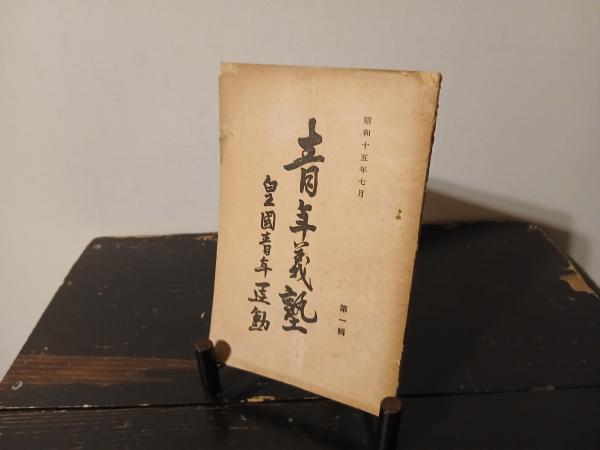 昭和十五年七月
青年義塾
第一輯
皇國青年運動